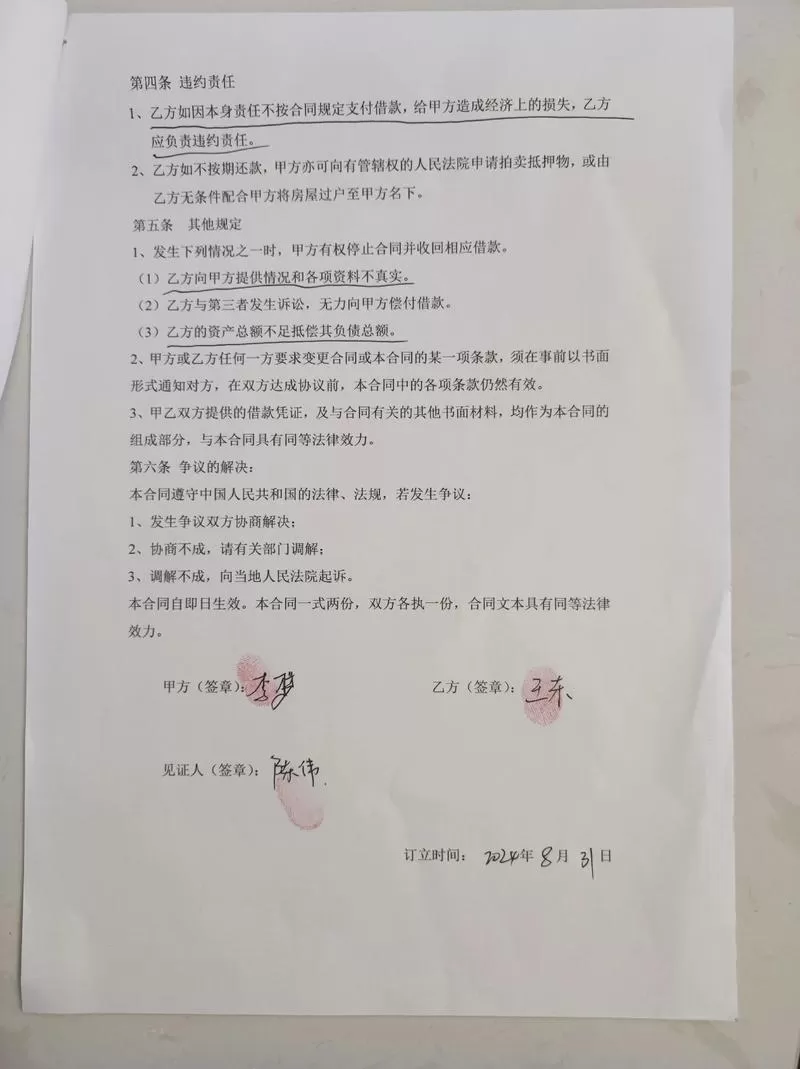 第四条 违约责任
1、乙方如因本身责任不按合同规定支付借款，给甲方造成经济上的损失，乙方
应负责违约责任。
2、乙方如不按期还款，甲方亦可向有管辖权的人民法院申请拍卖抵押物，或由
乙方无条件配合甲方将房屋过户至甲方名下。
第五条 其他规定
1、发生下列情况之一时，甲方有权停止合同并收回相应借款。
（1）乙方向甲方提供情况和各项资料不真实。
（2）乙方与第三者发生诉讼，无力向甲方偿付借款。
（3）乙方的资产总额不足抵偿其负债总额。
2、甲方或乙方任何一方要求变更合同或本合同的某一项条款，须在事前以书面
形式通知对方，在双方达成协议前，本合同中的各项条款仍然有效。
3、甲乙双方提供的借款凭证，及与合同有关的其他书面材料，均作为本合同的
组成部分，与本合同具有同等法律效力。
第六条 争议的解决：
本合同遵守中国人民共和国的法律、法规，若发生争议：
1、发生争议双方协商解决；
2、协商不成，请有关部门调解；
3、调解不成，向当地人民法院起诉。
本合同自即日生效。本合同一式两份，双方各执一份，合同文本具有同等法律
效力。
甲方（签章）：李梦 乙方（签章）：王东
见证人（签章）：陈伟
订立时间： 2024年8月31日